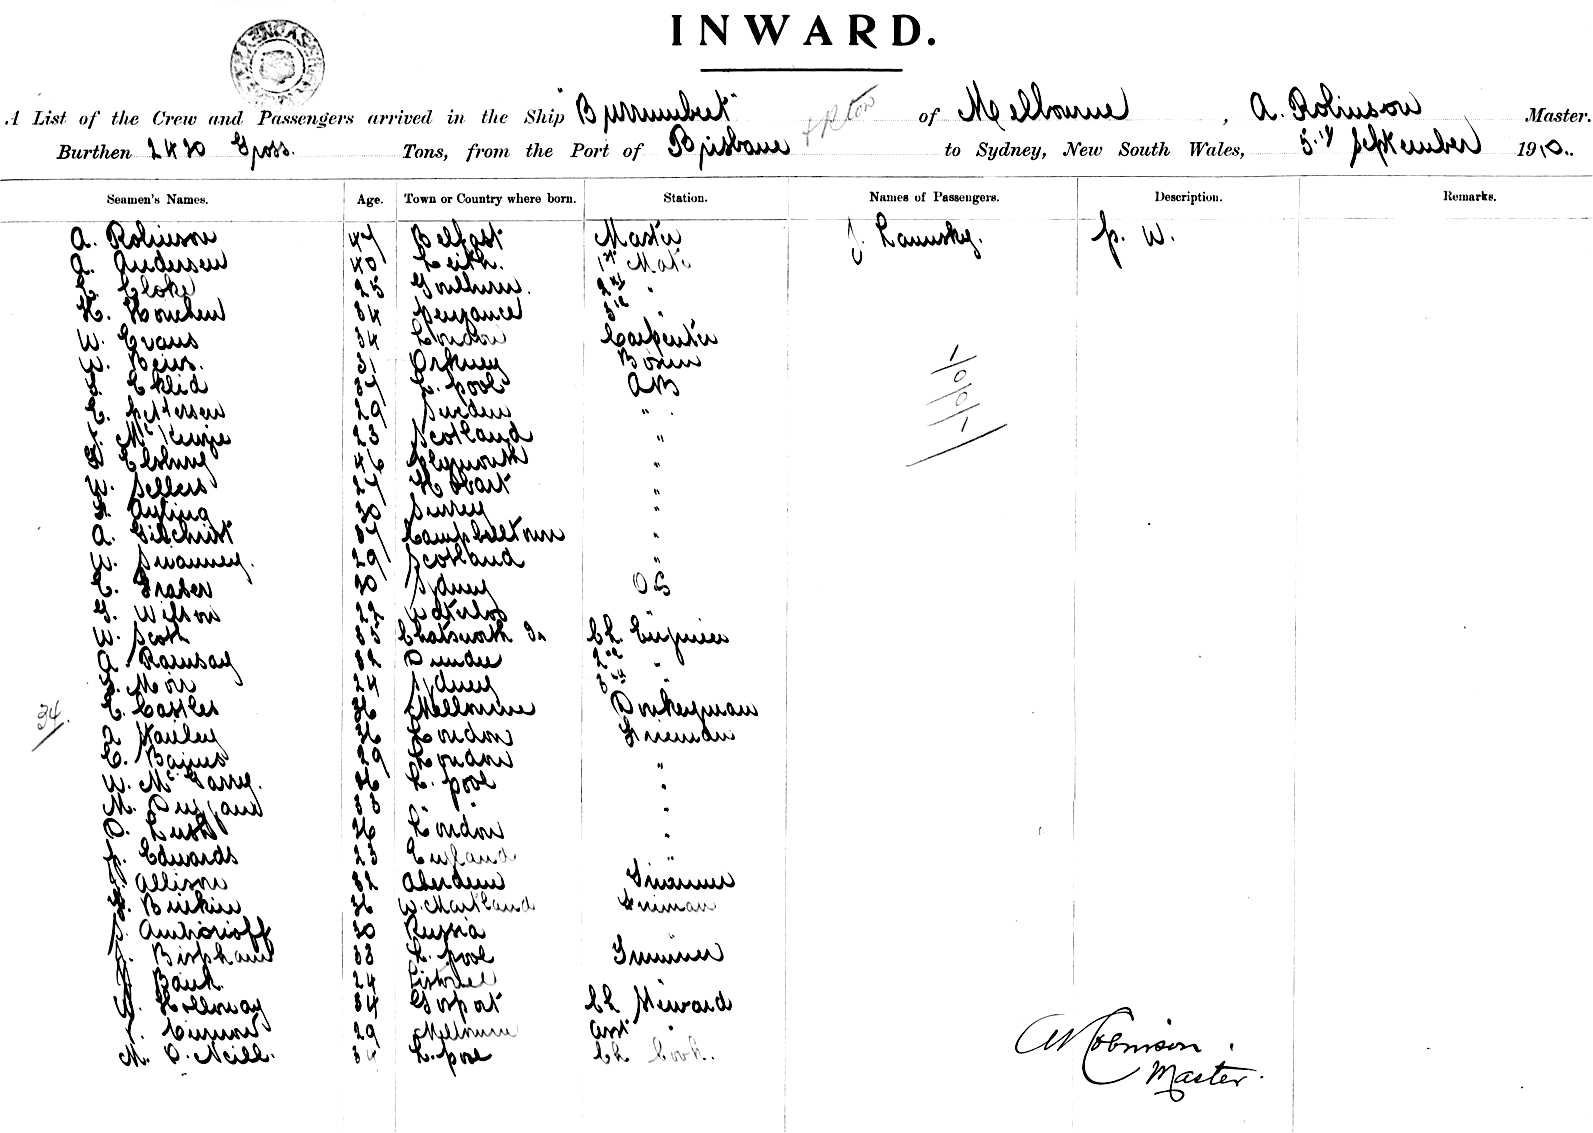 INWARD.
A List of the Crew and Passengers arrived in the Ship "Burrumbeet" of Melbourne, A. Robinson Master.
Burthen 2420 Gross Tons, from the Port of Brisbane to Sydney, New South Wales, 5th September 1910.
Seamen's Names. Age. Town or Country where born. Station. Names of Passengers. Description. Remarks.
A. Robinson 47 Belfast Master J. Lavinsky. p. W.
A. Andersen 40 Leith. 1st Mate
Cloke 25 Goulburn. 2nd "
H. Honchen 34 Penzance 3rd "
W. Evans 34 London Carpenter
W. 31 Orkney Bosun
Eklid 37 L. pool AB
C. Petersen 29 Sweden "
McKenzie 23 Scotland "
46 Plymouth "
W. Sellers 27 Hobart "
30 Surrey "
A. Gilchrist 37 Campbelltown "
W. Swanney. 29 Scotland "
C. Fraser 30 Sydney OS
G. Wilson 22 Waterloo "
W. Scott 35 Chatsworth Is Ch Engineer
A. Ramsay 32 Dundee 2nd "
Moir 24 Sydney 3rd "
C. Cassles 36 Melbourne Donkeyman
34.
A Stanley 36 London Fireman
C. Baines 29 London "
W. McGarry. 36 L. pool "
M. Duggan 33 " " "
D. Lush 36 London "
P. Edwards 23 England "
Allison 32 Aberdeen Trimmer
36 W. Maitland Fireman
30 Russia "
J. Bispham 33 L. pool Trimmer
J. Bank 24
W. Holloway 34 Gosport Ch Steward
29 Melbourne Asst "
M. O. Neill. 34 L. pool Ch Cook.
A Robinson.
Master.